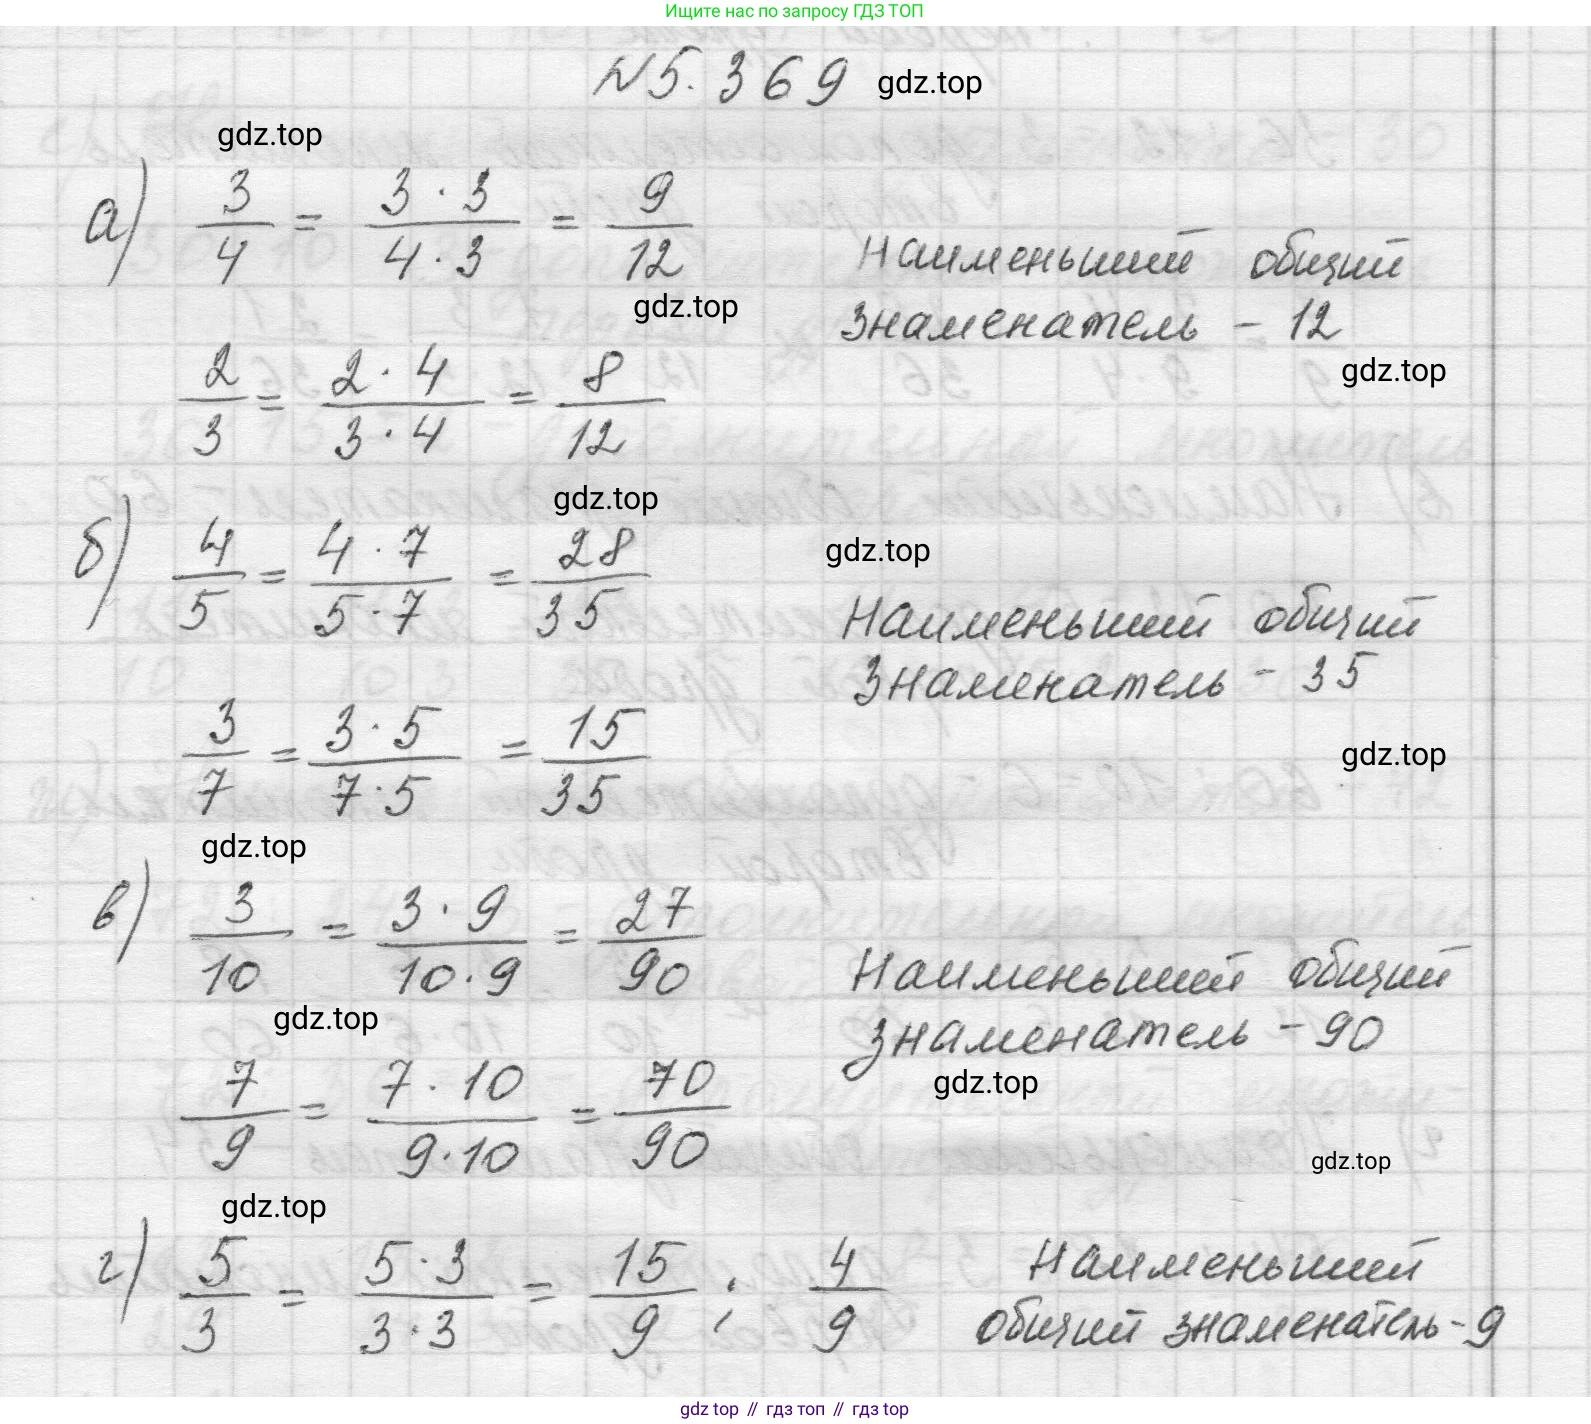 Ищите нас по запросу ГДЗ ТОП
N5.369 gdz.top
gdz.top
а) 3/4 = 3·3/4·3 = 9/12
Наименьший общий
знаменатель - 12
gdz.top
gdz.top
2/3 = 2·4/3·4 = 8/12
gdz.top
gdz.top
б) 4/5 = 4·7/5·7 = 28/35
Наименьший общий
знаменатель - 35
3/7 = 3·5/7·5 = 15/35
gdz.top
gdz.top
в) 3/10 = 3·9/10·9 = 27/90
Наименьший общий
знаменатель - 90
gdz.top
gdz.top
7/9 = 7·10/9·10 = 70/90
gdz.top
gdz.top
г) 5/3 = 5·3/3·3 = 15/9 ; 4/9
Наименьший
общий знаменатель - 9
gdz top // гдз топ // гдз top